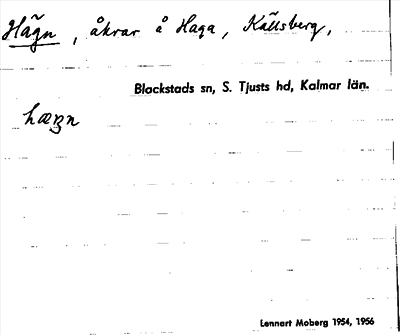 Hägn, åkrar å Haga, Källsberg,
Blackstads sn, S. Tjusts hd, Kalmar län.
hægn
Lennart Moberg 1954, 1956